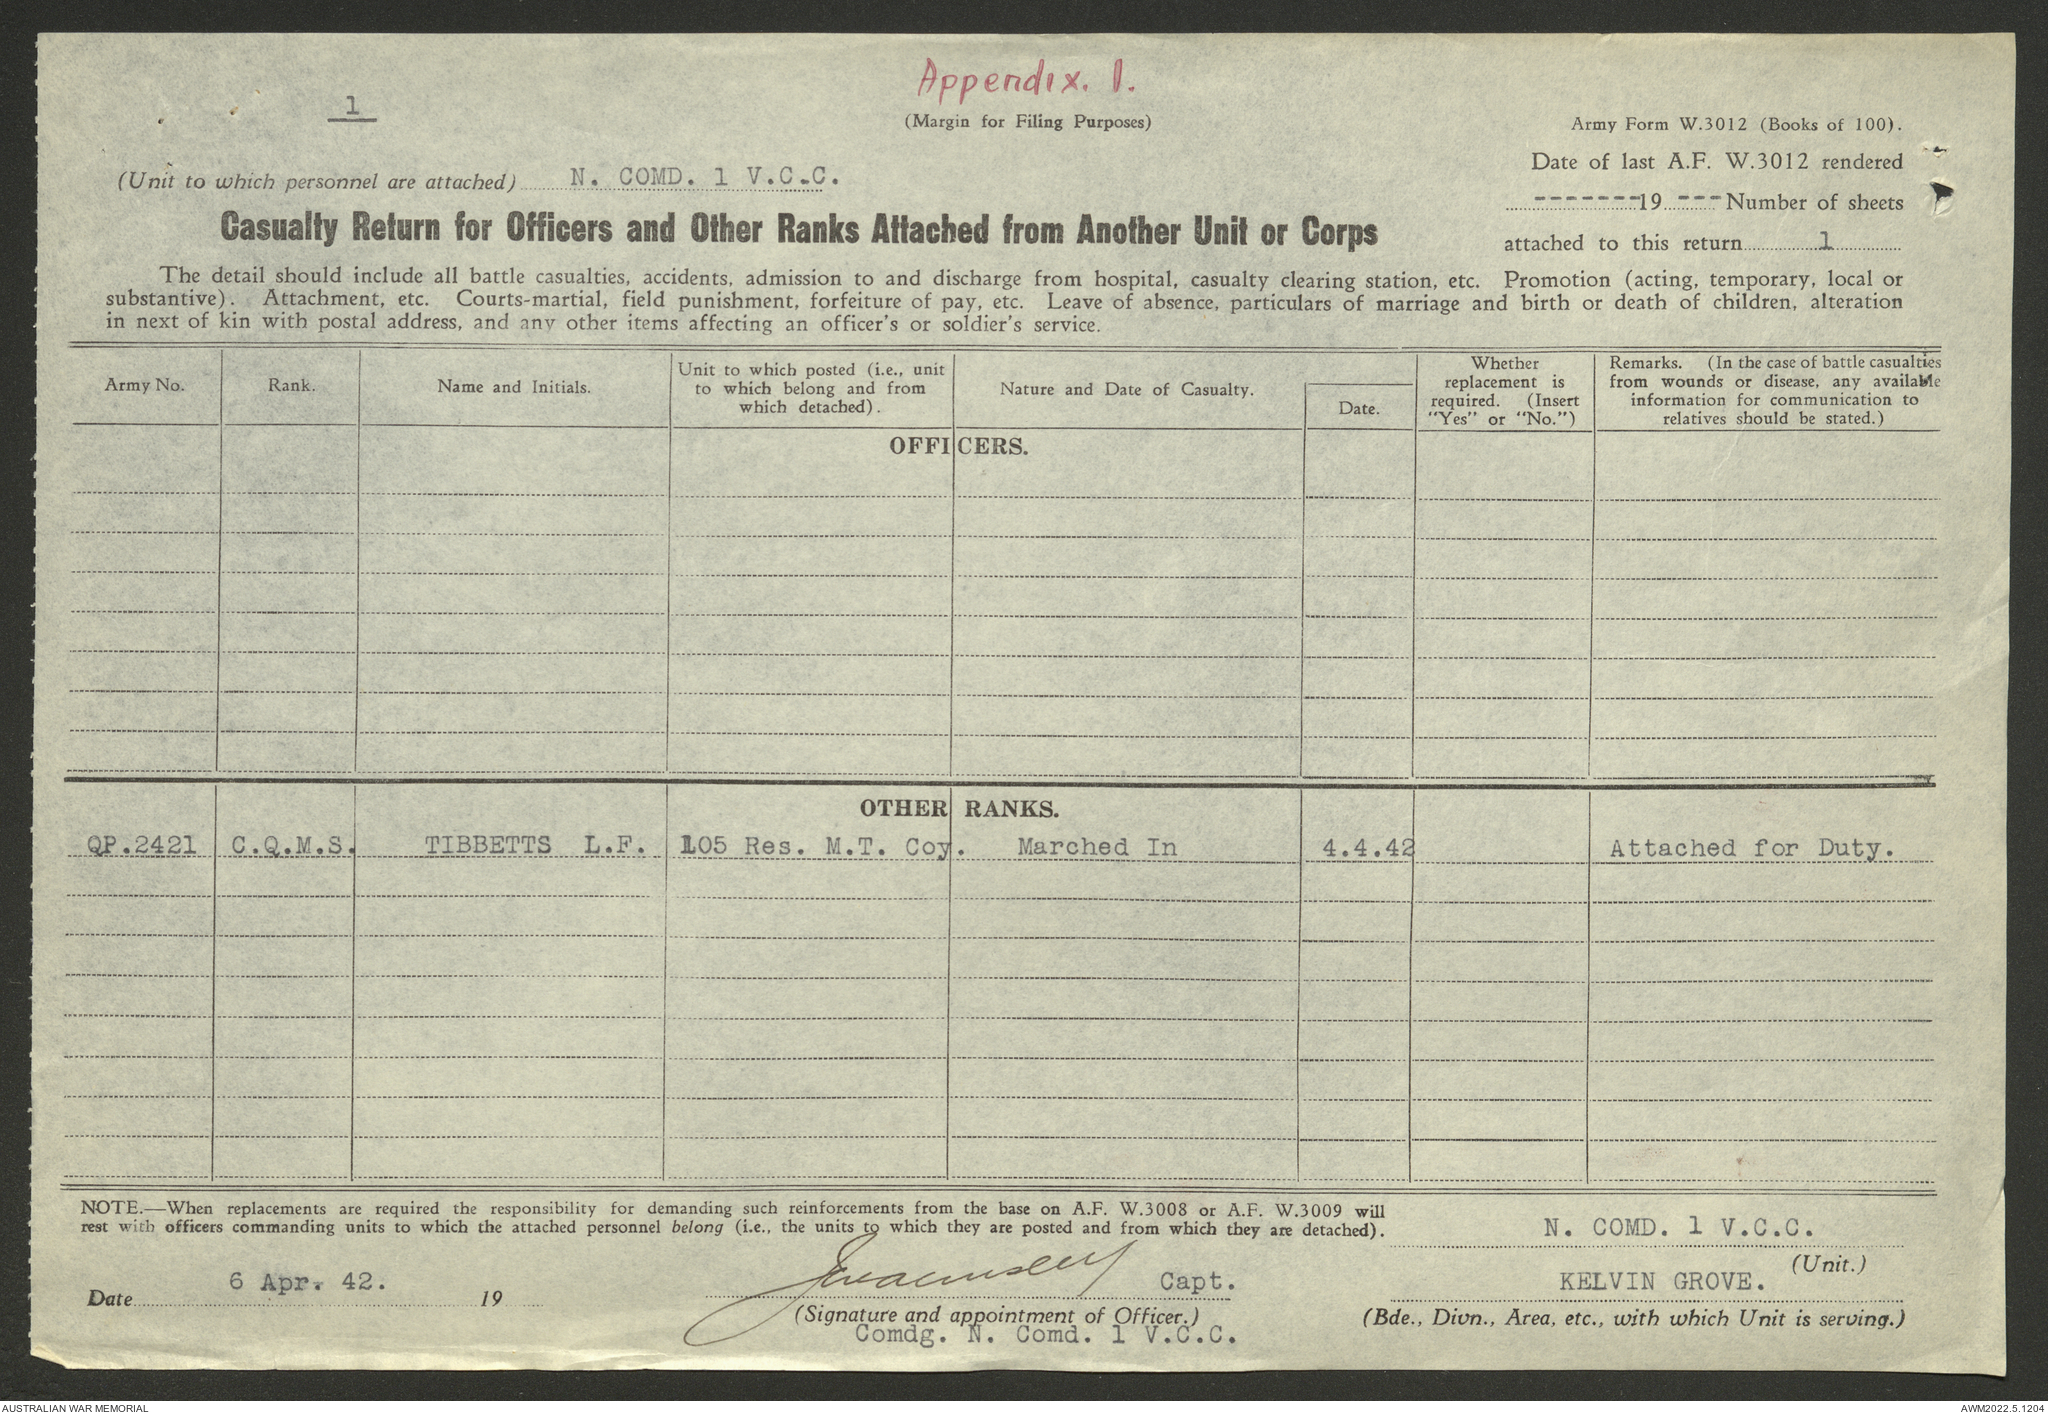 Appendix. 1.
1
(Margin for Filing Purposes)
Army Form W.3012 (Books of 100).
Date of last A.F. W.3012 rendered
-------19 --- Number of sheets
attached to this return 1
(Unit to which personnel are attached) N. COMD. 1 V.C.C.
Casualty Return for Officers and Other Ranks Attached from Another Unit or Corps
The detail should include all battle casualties, accidents, admission to and discharge from hospital, casualty clearing station, etc. Promotion (acting, temporary, local or
substantive). Attachment, etc. Courts-martial, field punishment, forfeiture of pay, etc. Leave of absence, particulars of marriage and birth or death of children, alteration
in next of kin with postal address, and any other items affecting an officer's or soldier's service.
Army No.
Rank.
Name and Initials.
Unit to which posted (i.e., unit
to which belong and from
which detached).
Nature and Date of Casualty.
Date.
Whether
replacement is
required. (Insert
"Yes" or "No.")
Remarks. (In the case of battle casualties
from wounds or disease, any available
information for communication to
relatives should be stated.)
OFFICERS.
OTHER RANKS.
QP.2421 C.Q.M.S. TIBBETTS L.F. 105 Res. M.T. Coy. Marched In 4.4.42 Attached for Duty.
NOTE.—When replacements are required the responsibility for demanding such reinforcements from the base on A.F. W.3008 or A.F. W.3009 will
rest with officers commanding units to which the attached personnel belong (i.e., the units to which they are posted and from which they are detached).
N. COMD. 1 V.C.C.
(Unit.)
Date 6 Apr. 42. 19
Capt.
(Signature and appointment of Officer.)
Comdg. N. Comd. 1 V.C.C.
KELVIN GROVE.
(Bde., Divn., Area, etc., with which Unit is serving.)
AUSTRALIAN WAR MEMORIAL
AWM2022.5.1204